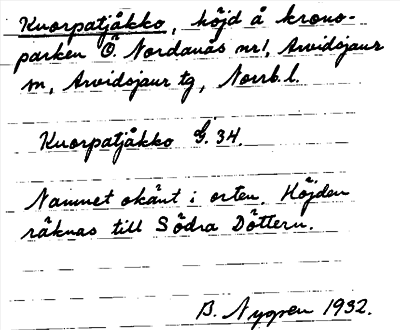 Kuorpatjåkko, höjd å krono-
parken Ö. Nordanås nr 1, Arvidsjaur
sn, Arvidsjaur tg, Norrb. l.
Kuorpatjåkko G. 34.
Namnet okänt i orten. Höjden
räknas till Södra Döttern.
B. Nygren 1932.